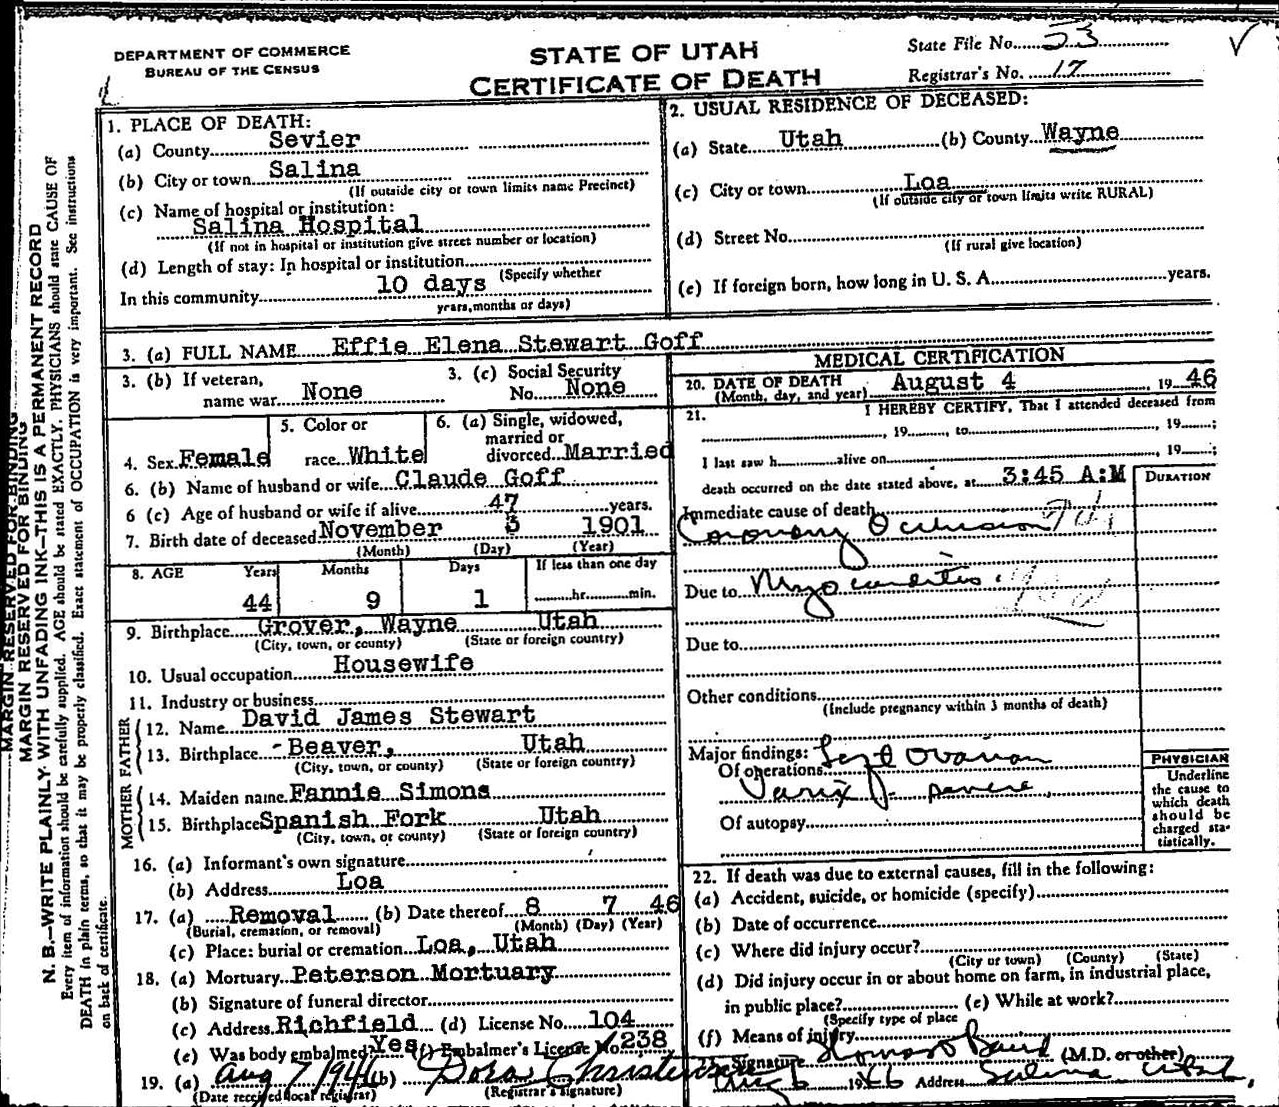 DEPARTMENT OF COMMERCE
BUREAU OF THE CENSUS
STATE OF UTAH
CERTIFICATE OF DEATH
State File No. 53
Registrar's No. 17
MARGIN RESERVED FOR BINDING
MARGIN RESERVED FOR BINDING
N. B.—WRITE PLAINLY WITH UNFADING INK—THIS IS A PERMANENT RECORD
Every item of information should be carefully supplied. AGE should be stated EXACTLY. PHYSICIANS should state CAUSE OF
DEATH in plain terms, so that it may be properly classified. Exact statement of OCCUPATION is very important. See instructions
on back of certificate.
1. PLACE OF DEATH:
(a) County Sevier
(b) City or town Salina
(If outside city or town limits name Precinct)
(c) Name of hospital or institution:
Salina Hospital
(If not in hospital or institution give street number or location)
(d) Length of stay: In hospital or institution
(Specify whether
In this community 10 days
years, months or days)
2. USUAL RESIDENCE OF DECEASED:
(a) State Utah (b) County Wayne
(c) City or town Loa
(If outside city or town limits write RURAL)
(d) Street No.
(If rural give location)
(e) If foreign born, how long in U. S. A. years.
3. (a) FULL NAME Effie Elena Stewart Goff
3. (b) If veteran, name war None
3. (c) Social Security No. None
4. Sex Female
5. Color or race White
6. (a) Single, widowed, married or divorced Married
6. (b) Name of husband or wife Claude Goff
6 (c) Age of husband or wife if alive 47 years.
7. Birth date of deceased November 3 1901
(Month) (Day) (Year)
8. AGE Years Months Days If less than one day
44 9 1 hr. min.
9. Birthplace Grover, Wayne Utah
(City, town, or county) (State or foreign country)
10. Usual occupation Housewife
11. Industry or business
FATHER
12. Name David James Stewart
13. Birthplace - Beaver, Utah
(City, town, or county) (State or foreign country)
MOTHER
14. Maiden name Fannie Simons
15. Birthplace Spanish Fork Utah
(City, town, or county) (State or foreign country)
16. (a) Informant's own signature
(b) Address Loa
17. (a) Removal (b) Date thereof 8 7 46
(Burial, cremation, or removal) (Month) (Day) (Year)
(c) Place: burial or cremation Loa, Utah
18. (a) Mortuary Peterson Mortuary
(b) Signature of funeral director
(c) Address Richfield (d) License No. 104
(e) Was body embalmed? Yes (f) Embalmer's License No. 238
19. (a) Aug 7 1946 (b) Dora Christensen
(Date received local registrar) (Registrar's signature)
MEDICAL CERTIFICATION
20. DATE OF DEATH August 4, 19 46
(Month, day, and year)
21. I HEREBY CERTIFY, That I attended deceased from
, 19 , to , 19 ;
I last saw h alive on , 19 ;
death occurred on the date stated above, at 3:45 A:M
DURATION
Immediate cause of death
Coronary Occlusion
Due to Myocarditis.
Due to
Other conditions
(Include pregnancy within 3 months of death)
Major findings:
Of operations Ovarian
severe
Of autopsy
PHYSICIAN
Underline
the cause to
which death
should be
charged sta-
tistically.
22. If death was due to external causes, fill in the following:
(a) Accident, suicide, or homicide (specify)
(b) Date of occurrence
(c) Where did injury occur?
(City or town) (County) (State)
(d) Did injury occur in or about home on farm, in industrial place,
in public place? (e) While at work?
(Specify type of place
(f) Means of injury
23. Signature (M.D. or other)
Aug 6 1946 Address Salina Utah.